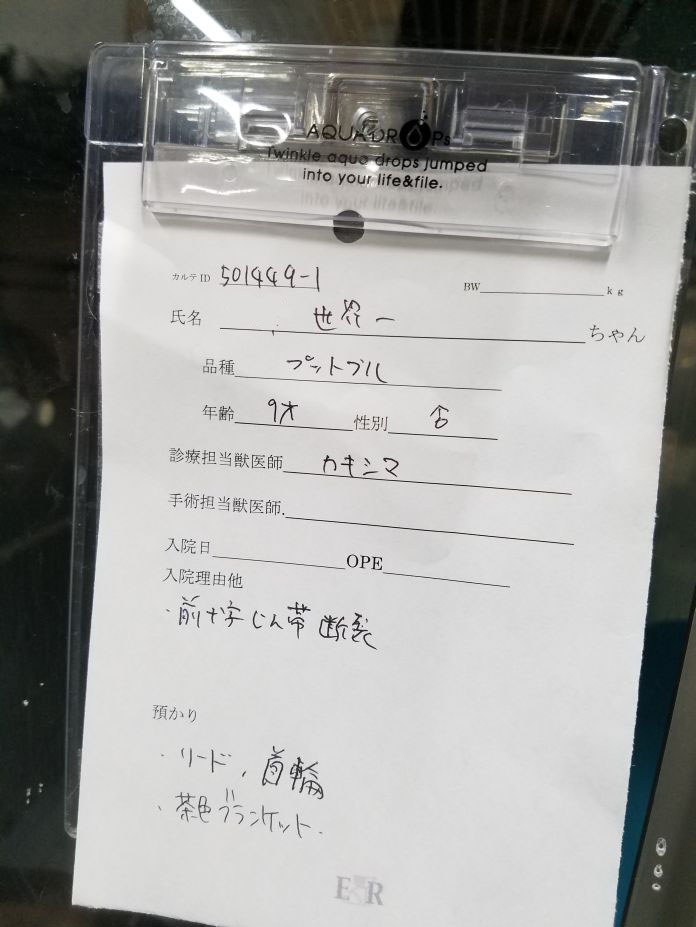 AQUADROPs
Twinkle aqua drops jumped
into your life&file.
カルテID 501449-1 BW kg
氏名 世界一 ちゃん
品種 プットブル
年齢 9才 性別 ♂
診療担当獣医師 カキシマ
手術担当獣医師.
入院日 OPE
入院理由他
・前十字じん帯断裂
預かり
・リード、首輪
・茶色ブランケット.
ER